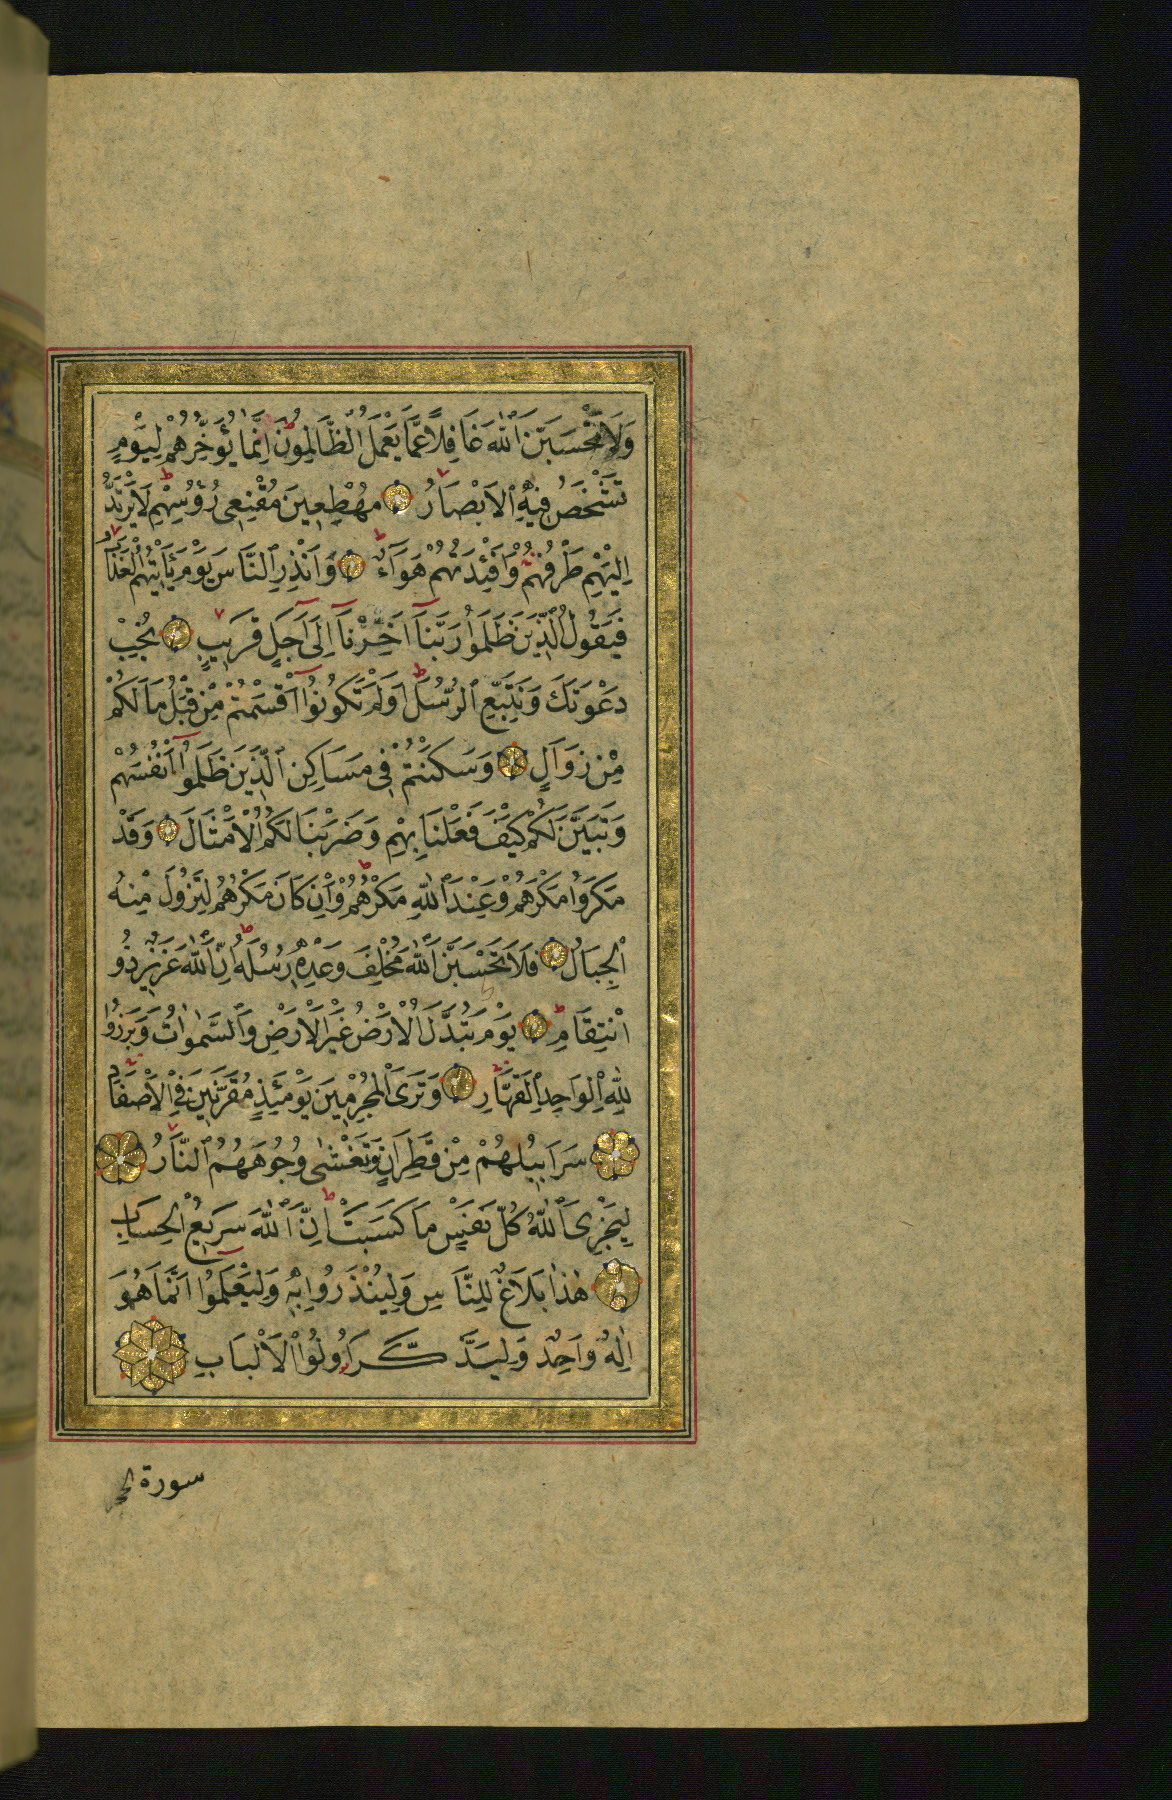 وَلَا تَحْسَبَنَّ اللّٰهَ غَافِلًا عَمَّا يَعْمَلُ الظَّالِمُونَ اِنَّمَا يُؤَخِّرُهُمْ لِيَوْمٍ
تَشْخَصُ فِيهِ الْاَبْصَارُ مُهْطِعِينَ مُقْنِعِى رُؤُسِهِمْ لَا يَرْتَدُّ
اِلَيْهِمْ طَرْفُهُمْ وَاَفْئِدَتُهُمْ هَوَآءٌ وَاَنْذِرِ النَّاسَ يَوْمَ يَأْتِيهِمُ الْعَذَابُ
فَيَقُولُ الَّذِينَ ظَلَمُوا رَبَّنَآ اَخِّرْنَآ اِلٰٓى اَجَلٍ قَرِيبٍ نُجِبْ
دَعْوَتَكَ وَنَتَّبِعِ الرُّسُلَ اَوَلَمْ تَكُونُوآ اَقْسَمْتُمْ مِنْ قَبْلُ مَا لَكُمْ
مِنْ زَوَالٍ وَسَكَنْتُمْ فِى مَسَاكِنِ الَّذِينَ ظَلَمُوآ اَنْفُسَهُمْ
وَتَبَيَّنَ لَكُمْ كَيْفَ فَعَلْنَا بِهِمْ وَضَرَبْنَا لَكُمُ الْاَمْثَالَ وَقَدْ
مَكَرُوا مَكْرَهُمْ وَعِنْدَ اللّٰهِ مَكْرُهُمْ وَاِنْ كَانَ مَكْرُهُمْ لِتَزُولَ مِنْهُ
الْجِبَالُ فَلَا تَحْسَبَنَّ اللّٰهَ مُخْلِفَ وَعْدِهِ رُسُلَهُ اِنَّ اللّٰهَ عَزِيزٌ ذُو
انْتِقَامٍ يَوْمَ تُبَدَّلُ الْاَرْضُ غَيْرَ الْاَرْضِ وَالسَّمٰوَاتُ وَبَرَزُوا
لِلّٰهِ الْوَاحِدِ الْقَهَّارِ وَتَرَى الْمُجْرِمِينَ يَوْمَئِذٍ مُقَرَّنِينَ فِى الْاَصْفَادِ
سَرَابِيلُهُمْ مِنْ قَطِرَانٍ وَتَغْشٰى وُجُوهَهُمُ النَّارُ
لِيَجْزِىَ اللّٰهُ كُلَّ نَفْسٍ مَا كَسَبَتْ اِنَّ اللّٰهَ سَرِيعُ الْحِسَابِ
هٰذَا بَلَاغٌ لِلنَّاسِ وَلِيُنْذَرُوا بِهِ وَلِيَعْلَمُوآ اَنَّمَا هُوَ
اِلٰهٌ وَاحِدٌ وَلِيَذَّكَّرَ اُولُوا الْاَلْبَابِ
سورة